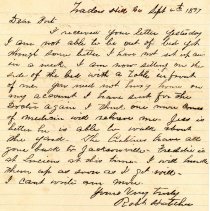 Traders Hill Ga Sept 5th 1897
Dear Aunt
I received your letter yesterday
I am not able to be out of bed yet
though some better. I have not set up
in a week. I am now sitting on the
side of the bed with a table in front
of me. you need not hurry home on
my account. I have sent for the
Doctor again I think one more course
of medicine will relieve me. Jess is
better he is able to walk about
the yard. The have all
gone back to Jacksonville. Freddie is
at this time. I will
them up as soon as I get well.
I cant write any more.
Yours Very truly
Robt